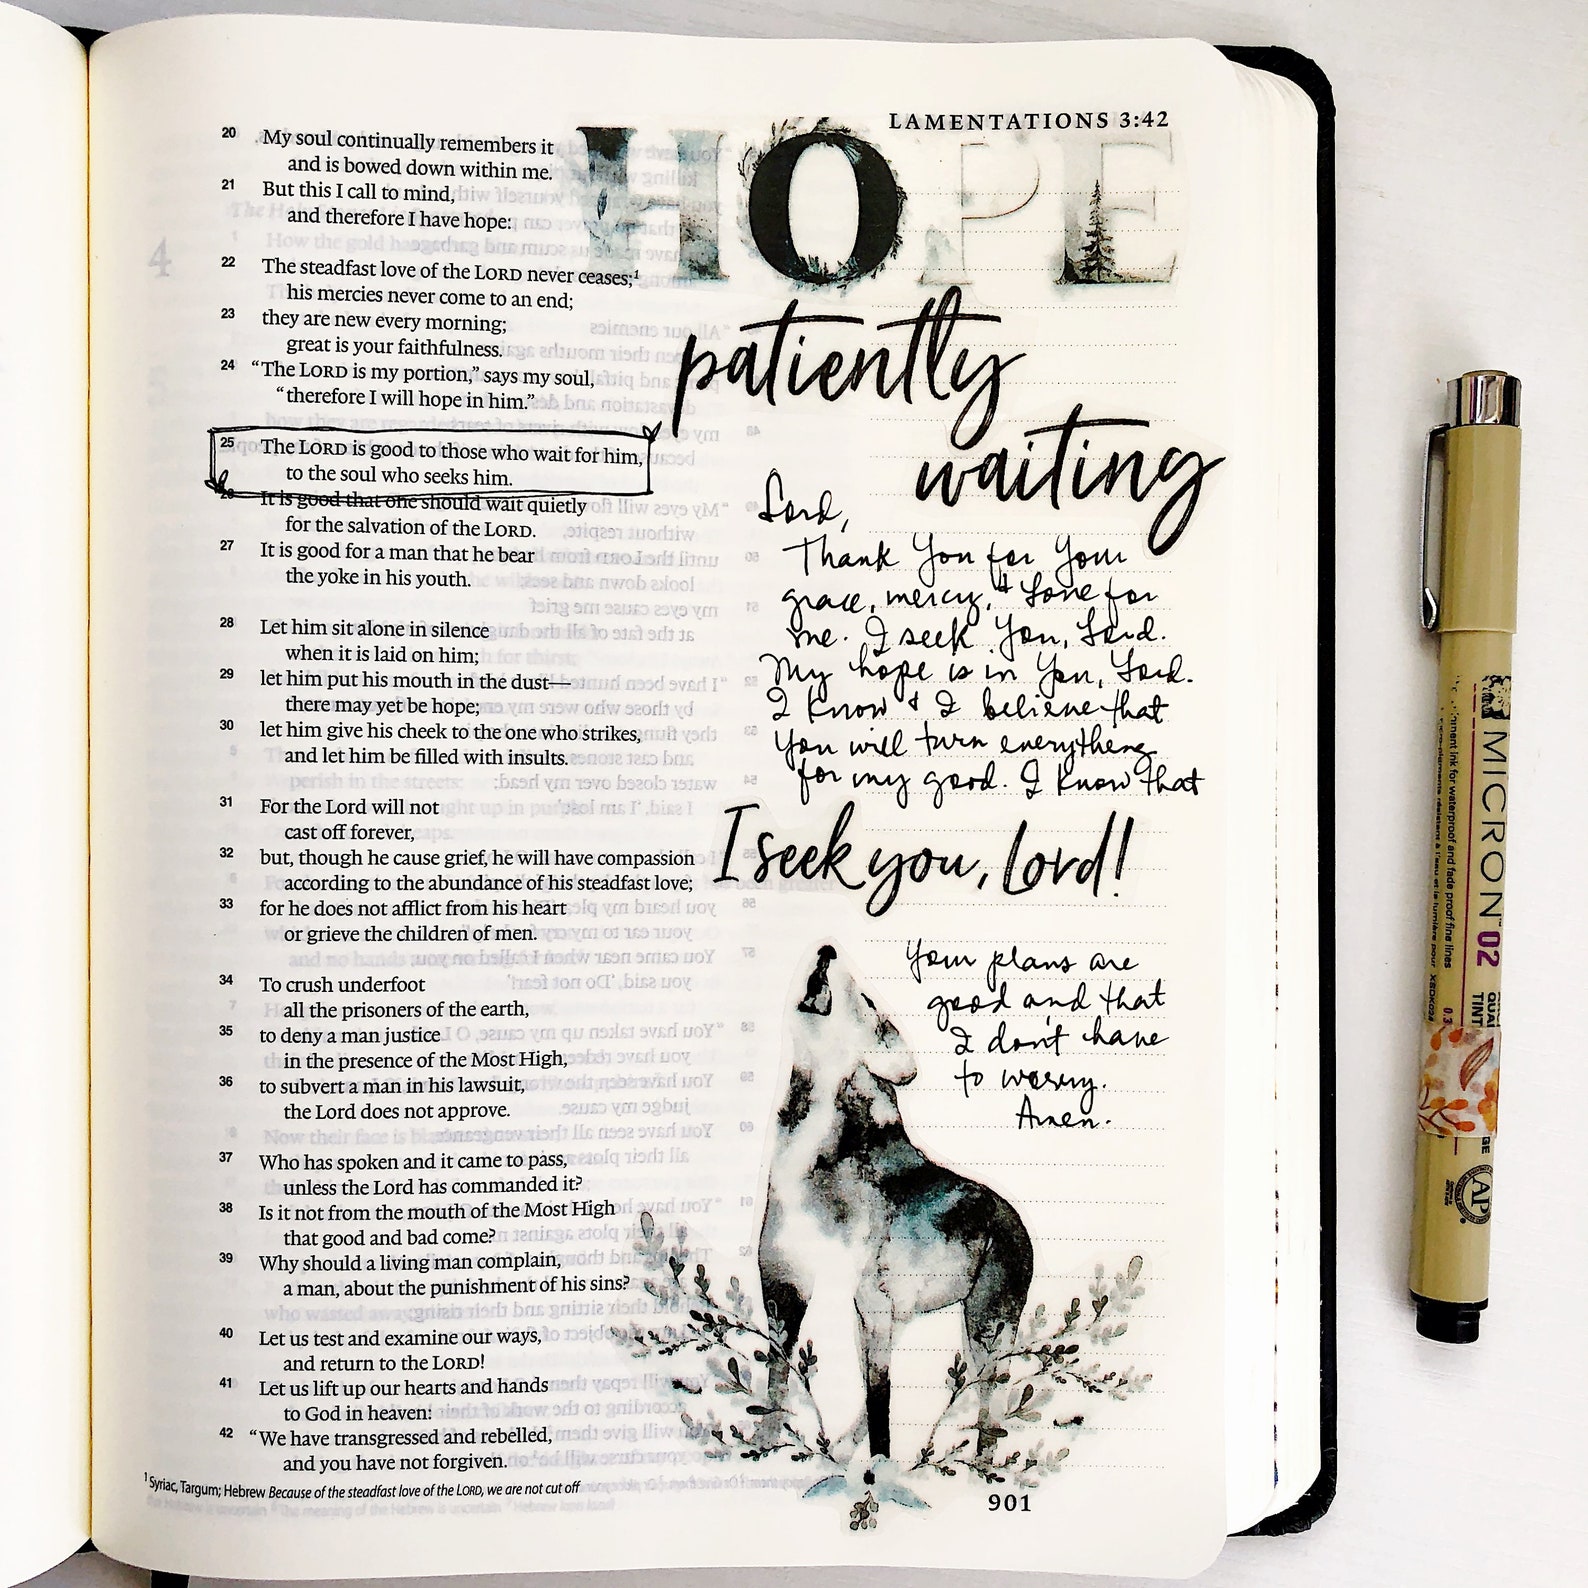 LAMENTATIONS 3:42
HOPE
patiently
waiting
20 My soul continually remembers it
and is bowed down within me.
21 But this I call to mind,
and therefore I have hope:
22 The steadfast love of the LORD never ceases;1
his mercies never come to an end;
23 they are new every morning;
great is your faithfulness.
24 “The LORD is my portion,” says my soul,
“therefore I will hope in him.”
25 The LORD is good to those who wait for him,
to the soul who seeks him.
26 It is good that one should wait quietly
for the salvation of the LORD.
27 It is good for a man that he bear
the yoke in his youth.
28 Let him sit alone in silence
when it is laid on him;
29 let him put his mouth in the dust—
there may yet be hope;
30 let him give his cheek to the one who strikes,
and let him be filled with insults.
31 For the Lord will not
cast off forever,
32 but, though he cause grief, he will have compassion
according to the abundance of his steadfast love;
33 for he does not afflict from his heart
or grieve the children of men.
34 To crush underfoot
all the prisoners of the earth,
35 to deny a man justice
in the presence of the Most High,
36 to subvert a man in his lawsuit,
the Lord does not approve.
37 Who has spoken and it came to pass,
unless the Lord has commanded it?
38 Is it not from the mouth of the Most High
that good and bad come?
39 Why should a living man complain,
a man, about the punishment of his sins?
40 Let us test and examine our ways,
and return to the LORD!
41 Let us lift up our hearts and hands
to God in heaven:
42 “We have transgressed and rebelled,
and you have not forgiven.
1 Syriac, Targum; Hebrew Because of the steadfast love of the LORD, we are not cut off
901
Lord,
Thank You for Your
grace, mercy, + Love for
me. I seek You, Lord.
My hope is in You, Lord.
I know + I believe that
You will turn everything
for my good. I know that
I seek you, Lord!
Your plans are
good and that
I don't have
to worry.
Amen.
MICRON™ 02
ink for waterproof and fade proof fine lines
XSDK02#
0.3
AP